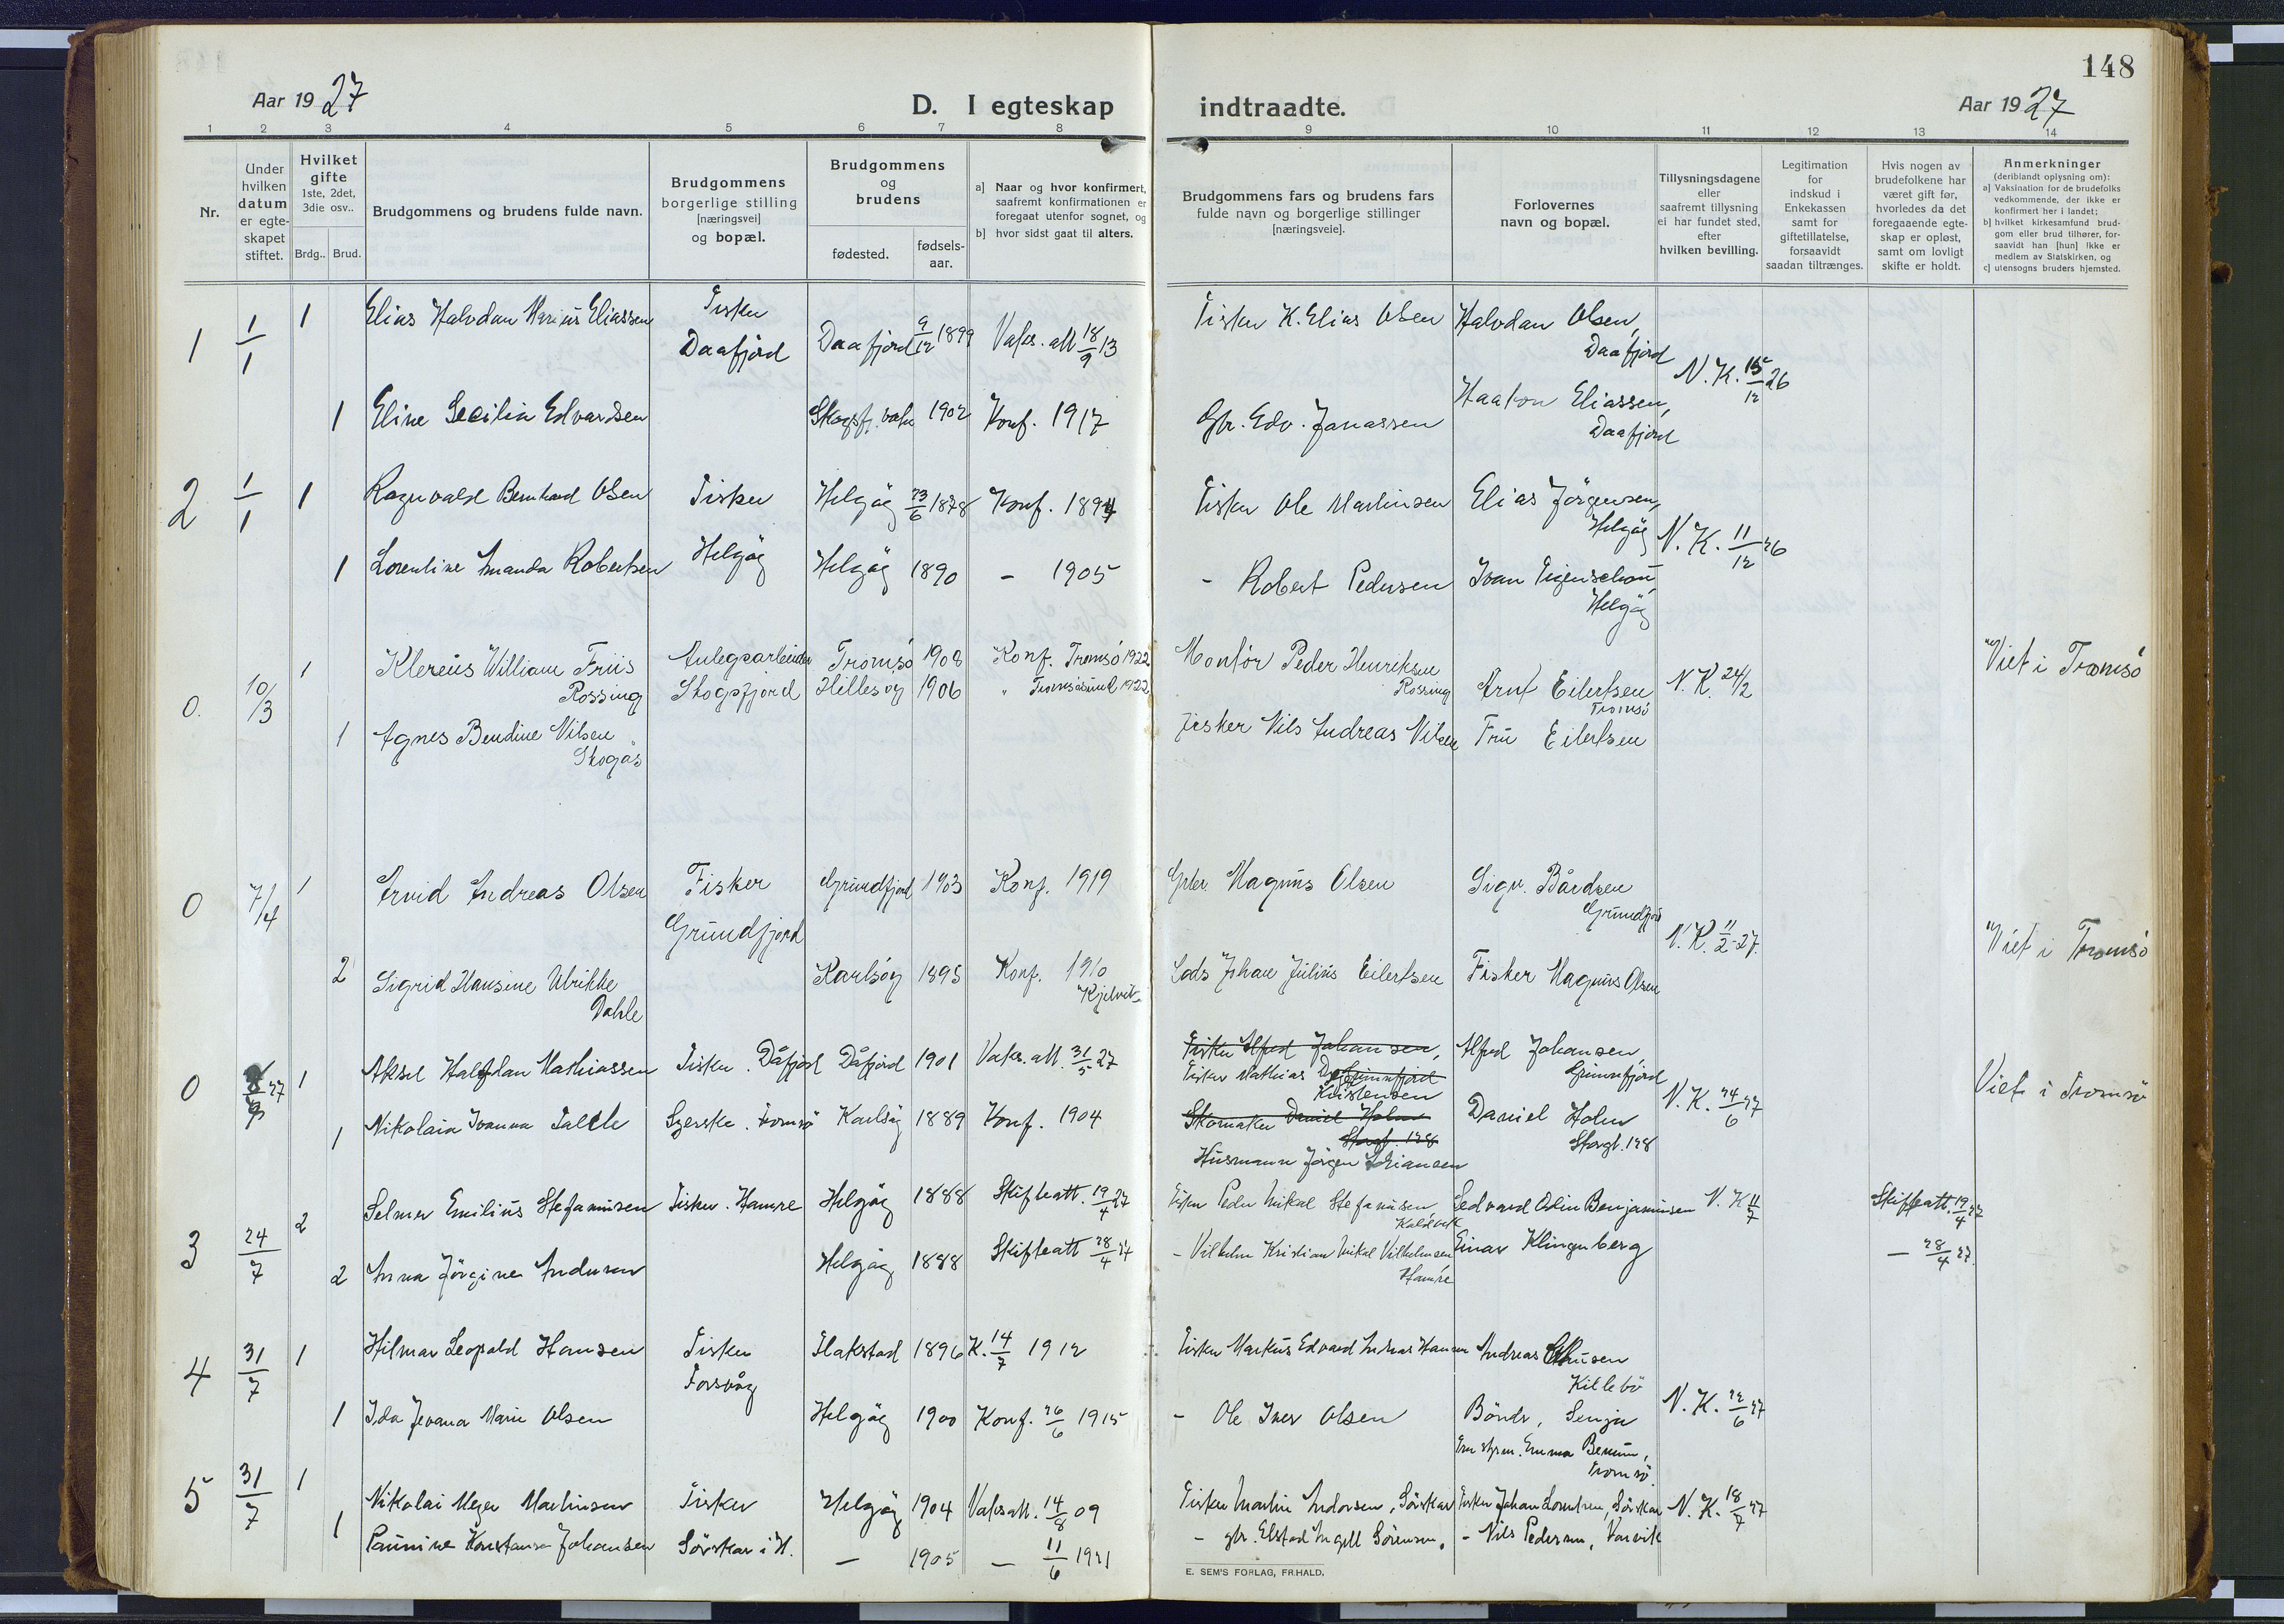 148
Aar 1927
D. I egteskap indtraadte.
Aar 1927
1 2 3 4 5 6 7 8 9 10 11 12 13 14
Nr.
Under hvilken datum er egteskapet stiftet.
Hvilket gifte 1ste, 2det, 3die osv..
Brdg.. Brud.
Brudgommens og brudens fulde navn.
Brudgommens borgerlige stilling [næringsvei] og bopæl.
Brudgommens og brudens
fødested.
fødselsaar.
a] Naar og hvor konfirmert, saafremt konfirmationen er foregaat utenfor sognet, og
b] hvor sidst gaat til alters.
Brudgommens fars og brudens fars fulde navn og borgerlige stillinger [næringsveie].
Forlovernes navn og bopæl.
Tillysningsdagene eller saafremt tillysning ei har fundet sted, efter hvilken bevilling.
Legitimation for indskud i Enkekassen samt for giftetillatelse, forsaavidt saadan tiltrænges.
Hvis nogen av brudefolkene har været gift før, hvorledes da det foregaaende egteskap er opløst, samt om lovligt skifte er holdt.
Anmerkninger (deriblandt oplysning om):
a] Vaksination for de brudefolks vedkommende, der ikke er konfirmert her i landet;
b] hvilket kirkesamfund brudgom eller brud tilhører, forsaavidt han [hun] ikke er medlem av Statskirken, og
c] utensogns bruders hjemsted.
1 1/1 1 Elias Halvdan Marius Eliassen Fisker Daafjord Daafjord 9/12 1899 Vaks. att 18/9 13 Fisker K. Elias Olsen Halvdan Olsen, Daafjord
N.K. 15/12 26
1 Eline Secilia Edvardsen 1902 Konf. 1917 Gbr. Edv. Janassen Haakon Eliassen, Daafjord
2 1/1 1 Ragnvald Bernhard Olsen Fisker Helgöy 23/6 1878 Konf. 1894 Fisker Ole Martinsen Elias Jörgensen, Helgöy
N.K. 11/12 26
1 Lorentine Amanda Robertsen Helgöy Helgöy 1890 - 1905 - Robert Pedersen Ivan Figenschou, Helgöy
0. 10/3 1 Klereus William Friis Rossing Anlegsarbeider Tromsö 1908 Konf. Tromsö 1922 Montör Peder Henriksen Rossing Arnt Eilertsen Tromsö N.K. 24/2 Viet i Tromsö
Skogsfjord Hillesöy 1906 " Tromsösund 1922
1 Agnes Bendine Nilsen Skogås Fisker Nils Andreas Nilsen Fru Eilertsen
0 7/4 1 Arvid Andreas Olsen Fisker Grundfjord Grundfjord 1903 Konf. 1919 Gbr. Magnus Olsen Sigv. Bårdsen Grundfjord
N.K. 11/2-27. Viet i Tromsö
2 Sigrid Hansine Ulrikke Dahle Karlsöy 1895 Konf. 1910 Kjelvik Lods Johan Julius Eilertsen Fisker Magnus Olsen
0 27 1 Aksel Halfdan Mathiassen Fisker. Dåfjord Dåfjord 1901 Vaks. att. 31/5 27 Fisker Alfred Johansen, Grunnfjord Alfred Johansen, Grunnfjord
Fisker Mathias Kristensen N.K. 24/6 27 Viet i Tromsö
1 Nikolaia Ivanna Karlsöy 1889 Konf. 1904 Skomaker Daniel Holm Storgt. 128 Daniel Holm Storgt. 128
Husmann Jörgen
3 24/7 2 Selmer Emilius Stefanusen Fisker. Hamre Helgöy 1888 Skifteatt. 19/4 27 Fisker Peder Mikal Stefanusen, Edvard Odin Benjaminsen N.K. Skifteatt. 19/4 27
2 Anna Jörgine Andersen Helgöy 1888 Skifteatt 28/4 27 - Vilhelm Kristian Mikal Vilhelmsen Hamre Einar Klingenberg - 28/4 27.
4 31/7 1 Hilmar Leopold Hansen Fisker Torsvåg Flakstad 1896 K. 14/7 1912 Fisker Markus Edvard Andreas Hansen Andreas Killebö
1 Ida Jovana Marie Olsen Helgöy 1900 Konf. 26/6 1915 - Ole Iver Olsen Bönder, Senja N.K. 22/6 27
Emma Tromsö.
5 31/7 1 Nikolai Meyer Martinsen Fisker Helgöy 1904 Vaks att. 14/8 09 Fisker Martin Andorsen, Sörskar Fisker Johan Lorentsen, Sörskar N.K. 18/7 27
1 Paunine Konstanse Johansen Sörskar i H. - 1905 - 11/6 1921 - gbr. Elstad Sörensen. - Nils Pedersen,
E. SEM'S FORLAG, FR.HALD.